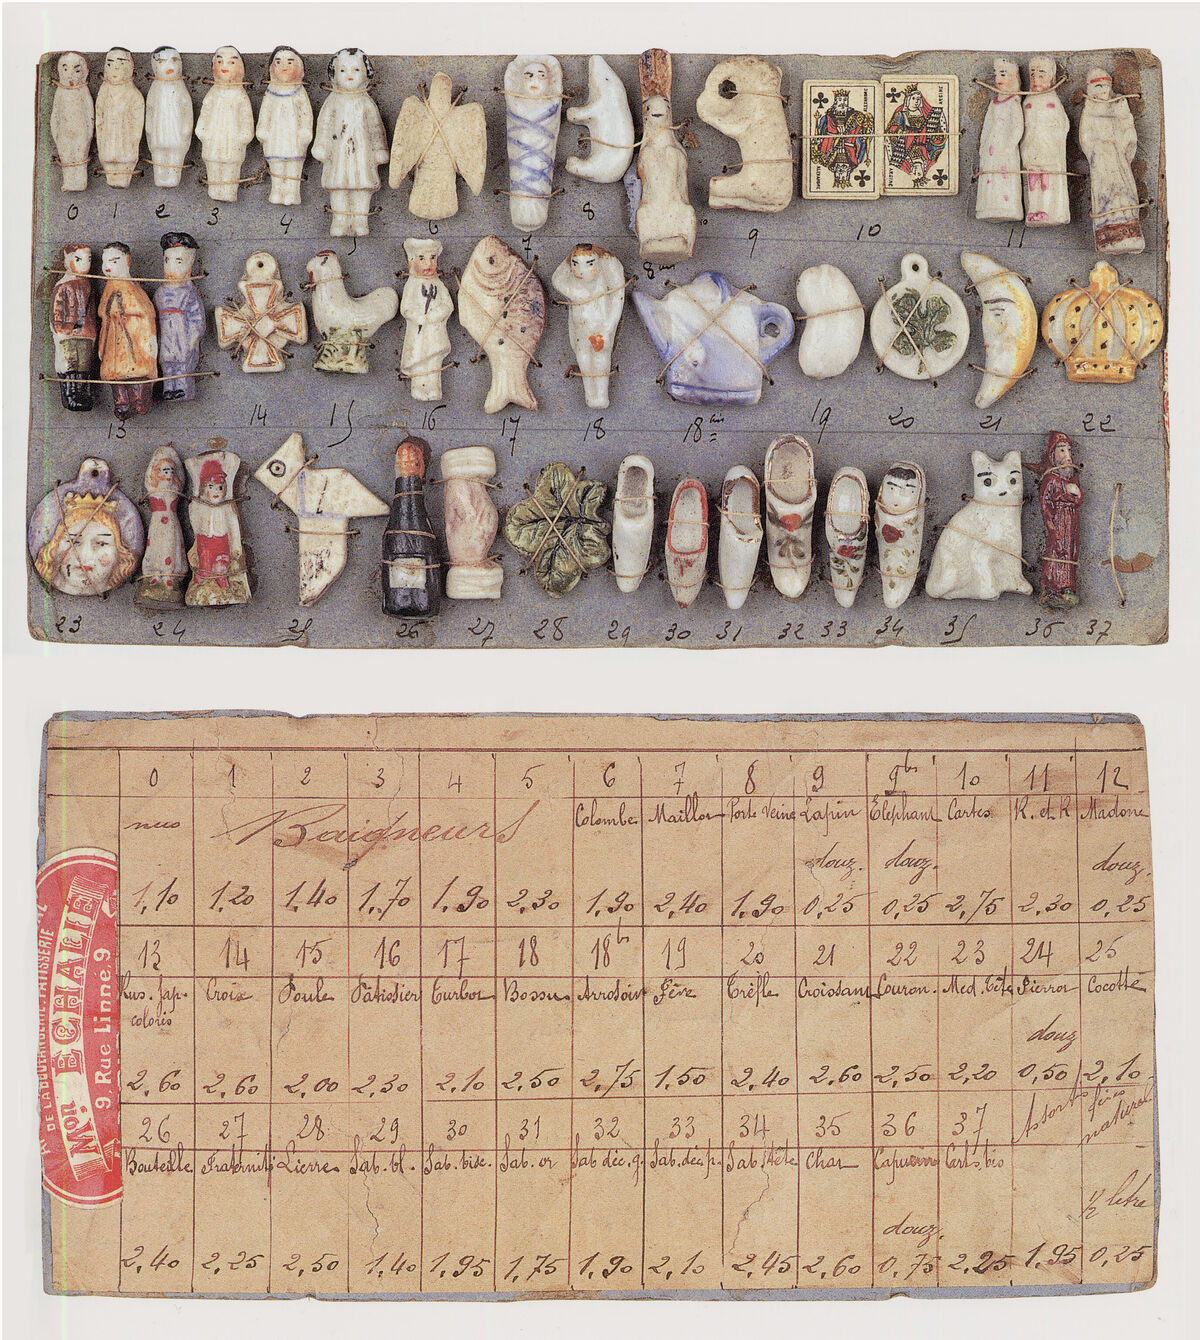 0 1 2 3 4 5 6 7 8 8 bis 9 10 11
13 14 15 16 17 18 18 bis 19 20 21 22
23 24 25 26 27 28 29 30 31 32 33 34 35 36 37
0 1 2 3 4 5 6 7 8 9 9 bis 10 11 12
nus Baigneurs Colombe Maillot Porte Veine Lapin Elephant Cartes R. et R Madone
douz. douz. douz.
1,10 1,20 1,40 1,70 1,90 2,30 1,90 2,40 1,90 0,25 0,25 2,75 2,30 0,25
13 14 15 16 17 18 18 bis 19 20 21 22 23 24 25
Rus. Jap. Croix Poule Patissier Turbot Bossu Arrosoir Fève Trèfle Croissant Couron. Med. Tête Pierrot Cocotte
coloris
douz
2,60 2,60 2,00 2,30 2,10 2,50 2,75 1,50 2,40 2,60 2,50 2,20 0,50 2,10
26 27 28 29 30 31 32 33 34 35 36 37 Assorts fèves naturel
Bouteille Fraternité Lierre Sab. bl. Sab. bisc. Sab. or Sab déc. g. Sab. dec p. Sab. Tête Chat Capucin Cart. bis
½ litre
douz.
2,40 2,25 2,50 1,40 1,95 1,75 1,90 2,10 2,45 2,60 0,75 2,25 1,95 0,25
DE LA BOULANGERIE-PATISSERIE
Mon ECHALIE
9, Rue Linné, 9